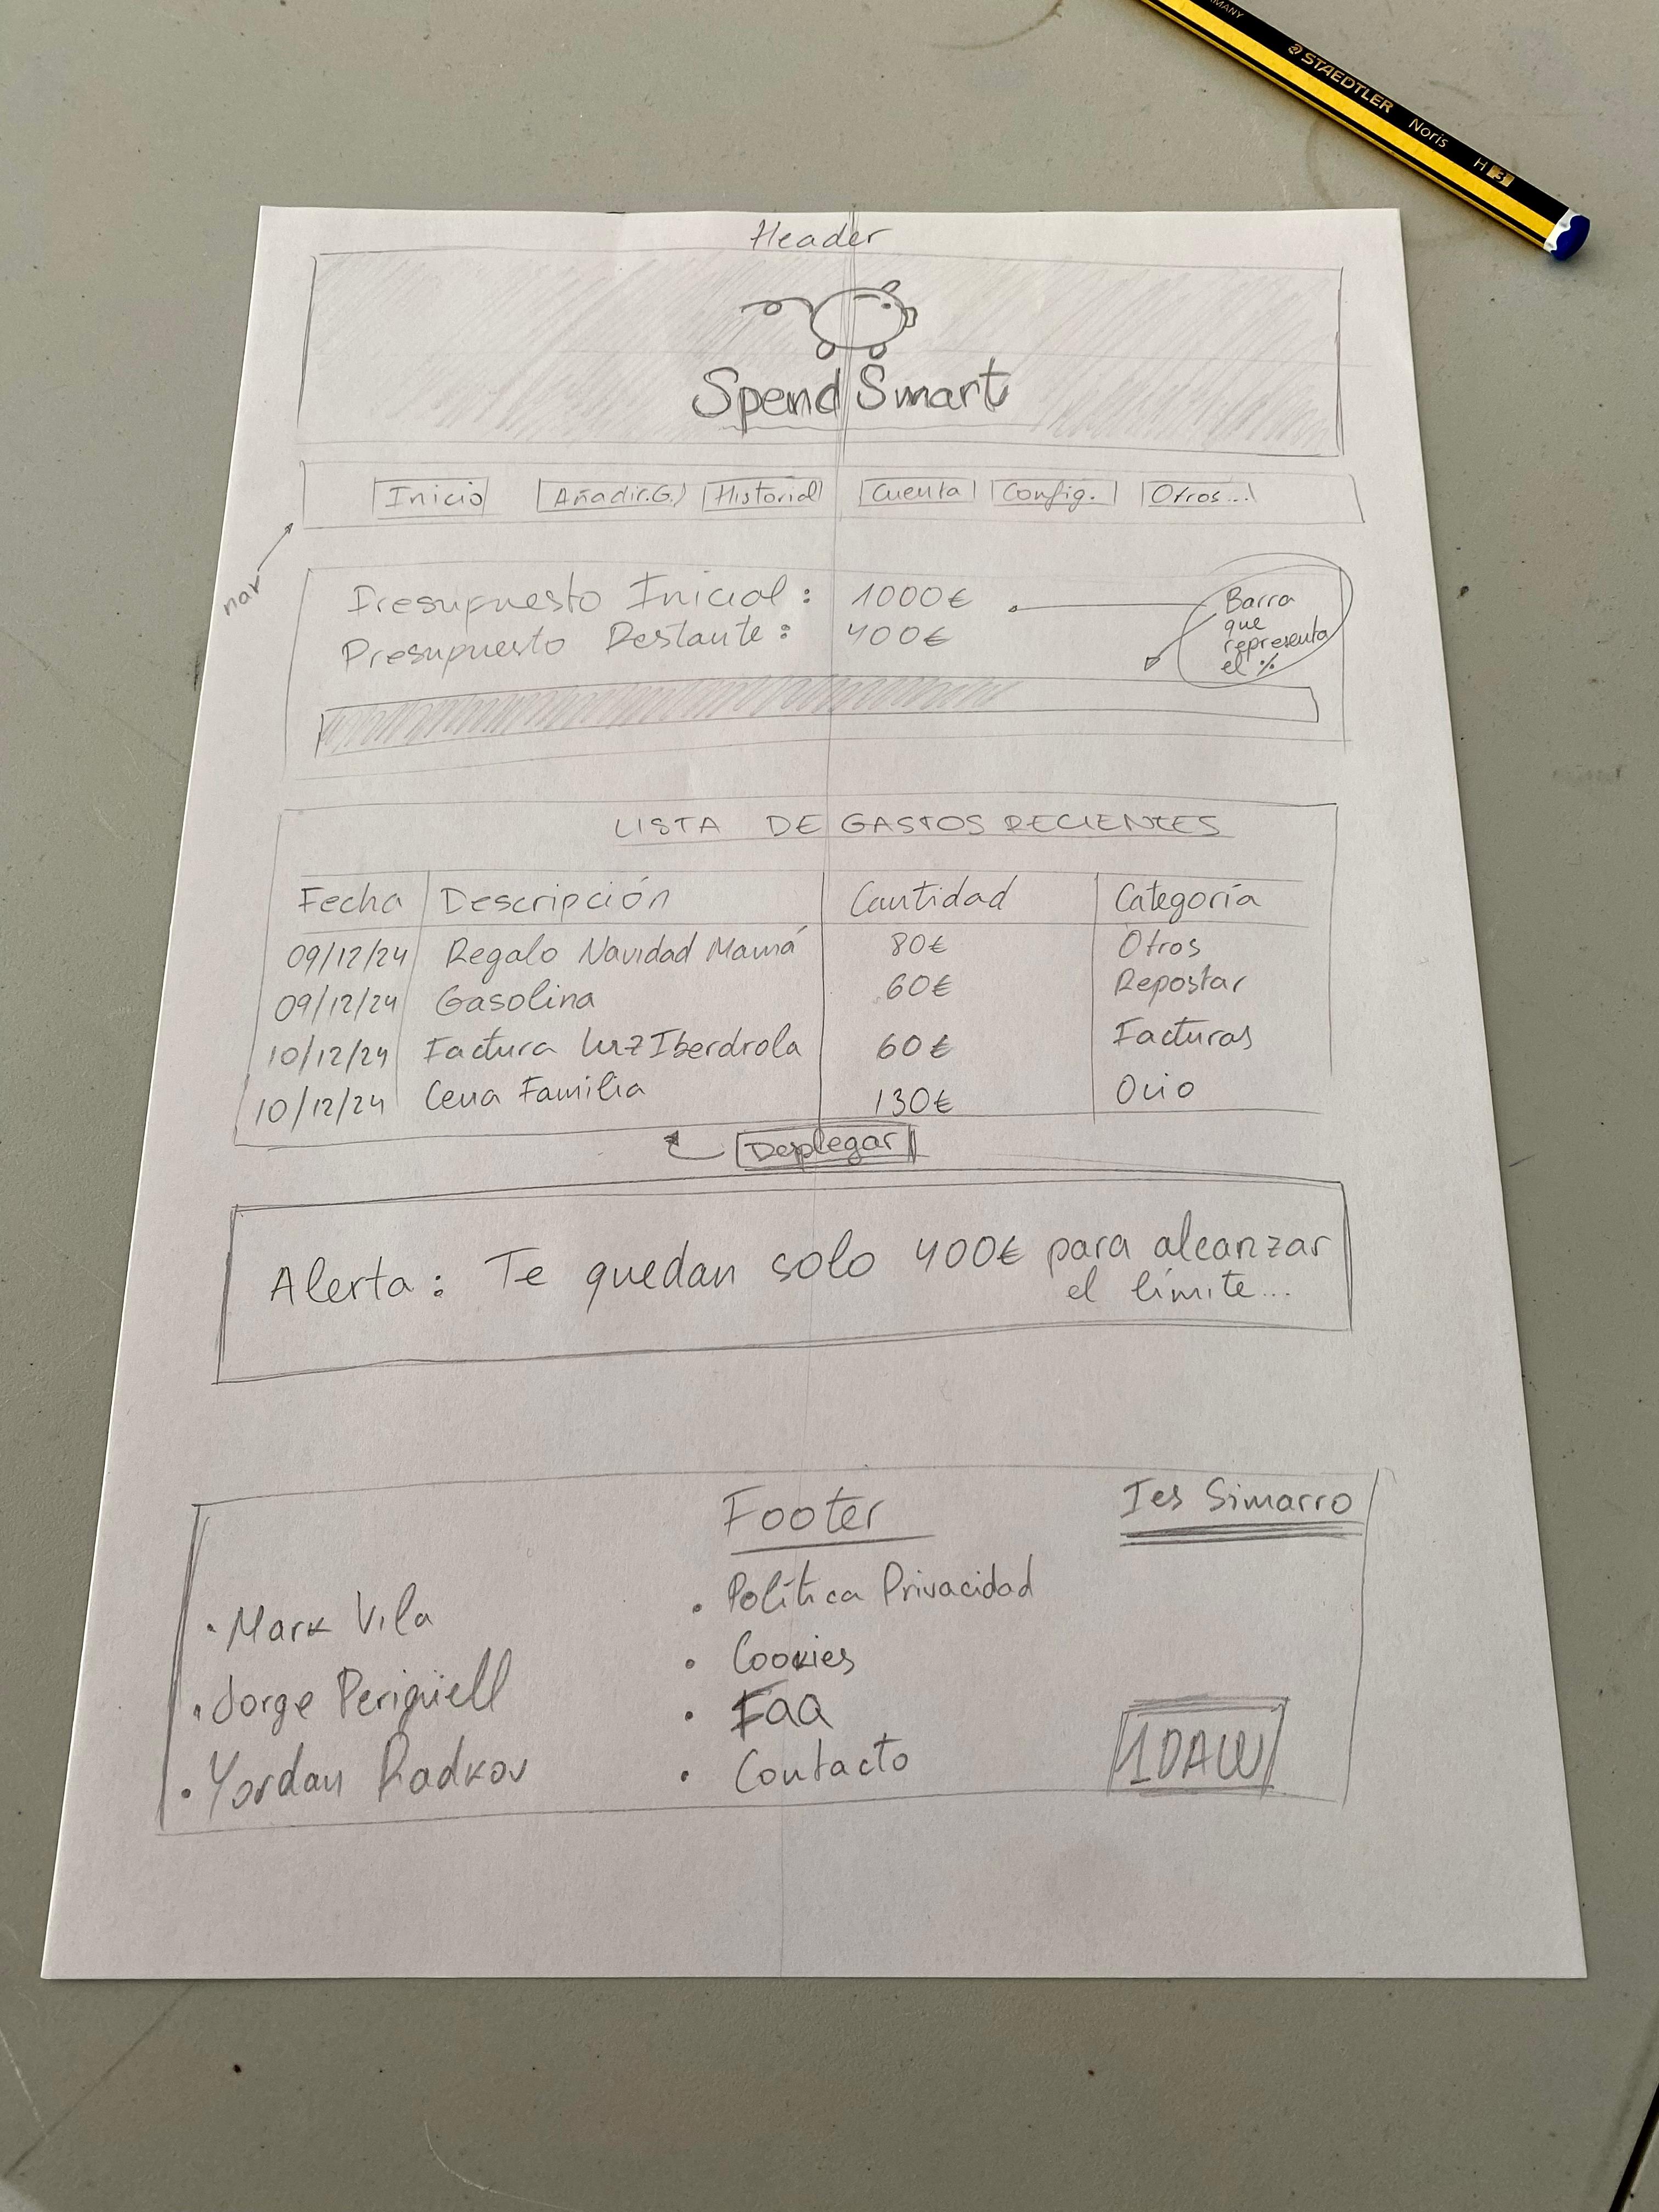 GERMANY
STAEDTLER Noris HB
Header
Spend Smart
Inicio Añadir.G. Historial Cuenta Config. Otros...
nav
Presupuesto Inicial: 1000€
Presupuesto Restante: 400€
Barra
que
representa
el %
LISTA DE GASTOS RECIENTES
Fecha Descripción Cantidad Categoría
09/12/24 Regalo Navidad Mamá 80€ Otros
09/12/24 Gasolina 60€ Repostar
10/12/24 Factura luz Iberdrola 60€ Facturas
10/12/24 Cena Familia 130€ Ocio
Desplegar
Alerta: Te quedan solo 400€ para alcanzar
el límite...
Footer Ies Simarro
• Mark Vila • Política Privacidad
• Jorge Periguell • Cookies
• FAQ
• Yordan Radkov • Contacto
1DAW